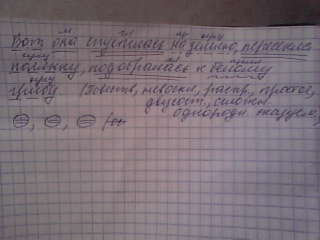 Вот она спустилась на землю, пересекла
полянку, подобралась к белому
грибу (Повеств., невоскл., распр., простое,
двусост., сложн.
однородн. сказуем.,